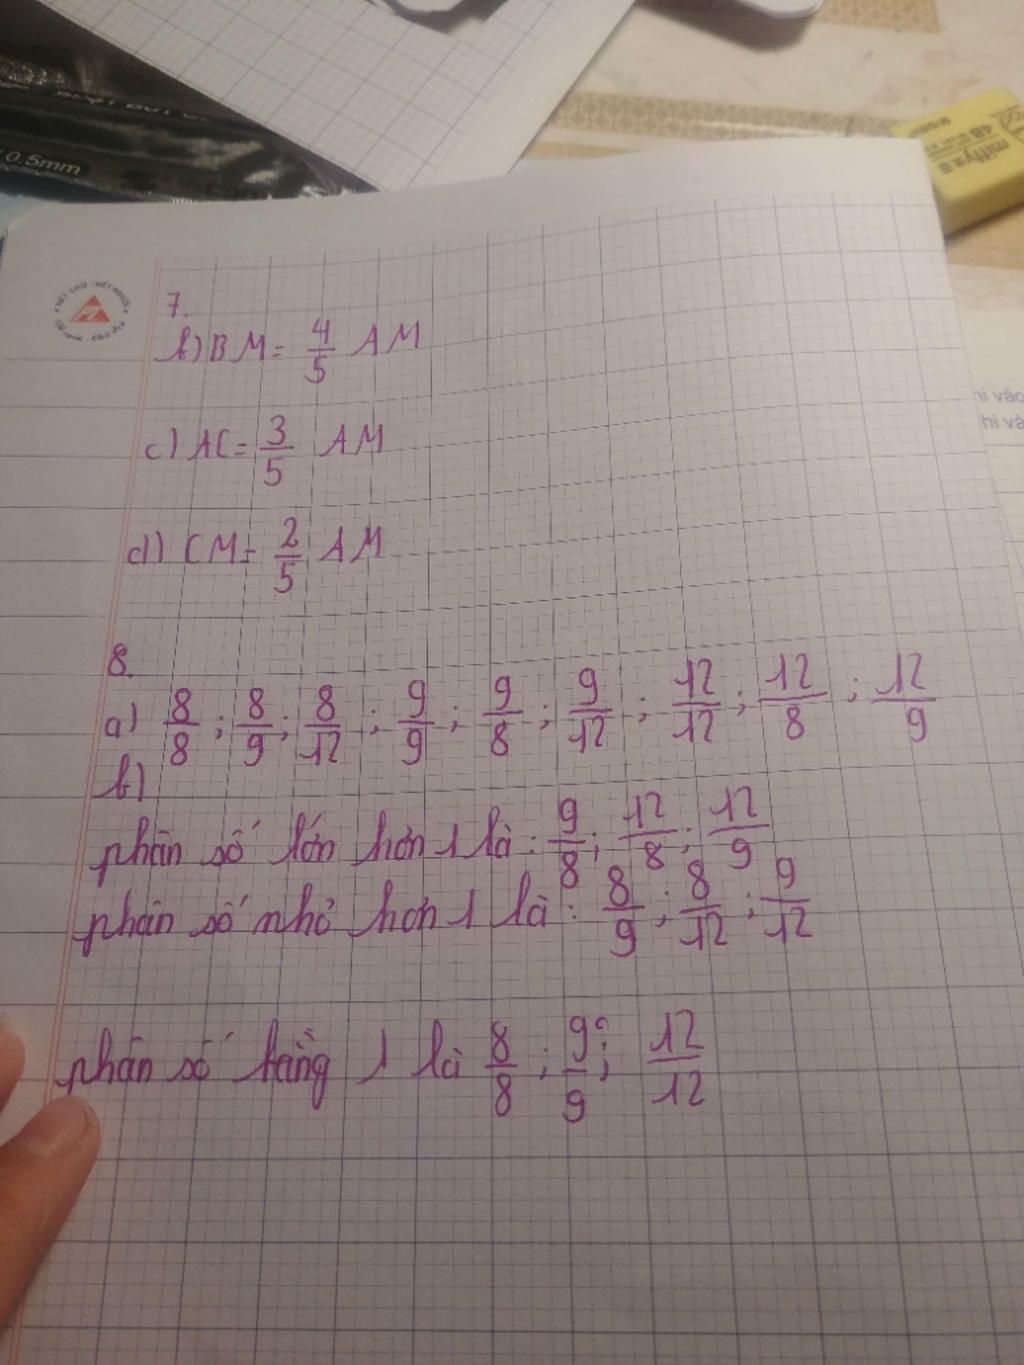 0.5mm
4B
miffy
hi vào
7.
b) BM = 4/5 AM
c) AC = 3/5 AM
d) CM = 2/5 AM
8.
a) 8/8 ; 8/9 ; 8/12 ; 9/9 ; 9/8 ; 9/12 ; 12/12 ; 12/8 ; 12/9
b)
phân số lớn hơn 1 là : 9/8 ; 12/8 ; 12/9
phân số nhỏ hơn 1 là : 8/9 ; 8/12 ; 9/12
phân số bằng 1 là 8/8 ; 9/9 ; 12/12